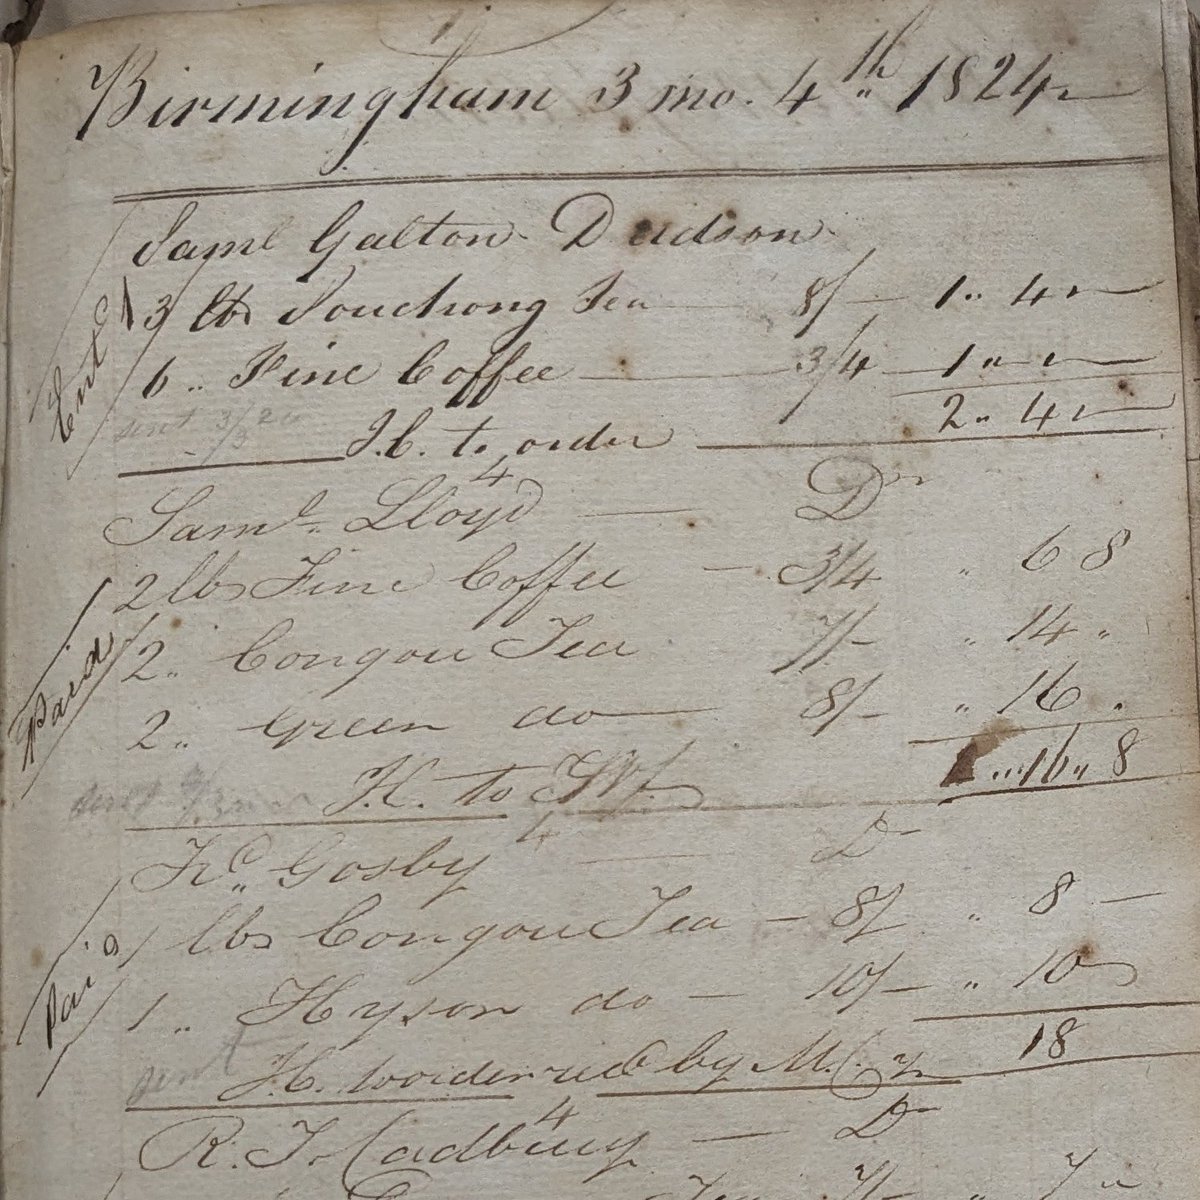 Birmingham 3 mo. 4th 1824
Saml Galton Dudson
Entd 3 lbs Souchong Tea 8/- 1 " 4 "
6 " Fine Coffee 3/4 1 " "
2 " 4 "
sent J.C. to order
4
Saml Lloyd Dr
2 lbs Fine Coffee 3/4 " 6 8
Paid 2 " Congou Tea 7/- " 14 "
2 " Green do 8/- " 16 "
1 " 16 " 8
sent H. to
4
Gosby Dr
Paid 1 lbs Congou Tea 8/ " 8 -
1 " Hyson do 10/- " 10
18
sent H. by M.C.
4
R. T. Cadbury Dr
Tea 7/- " 7 "